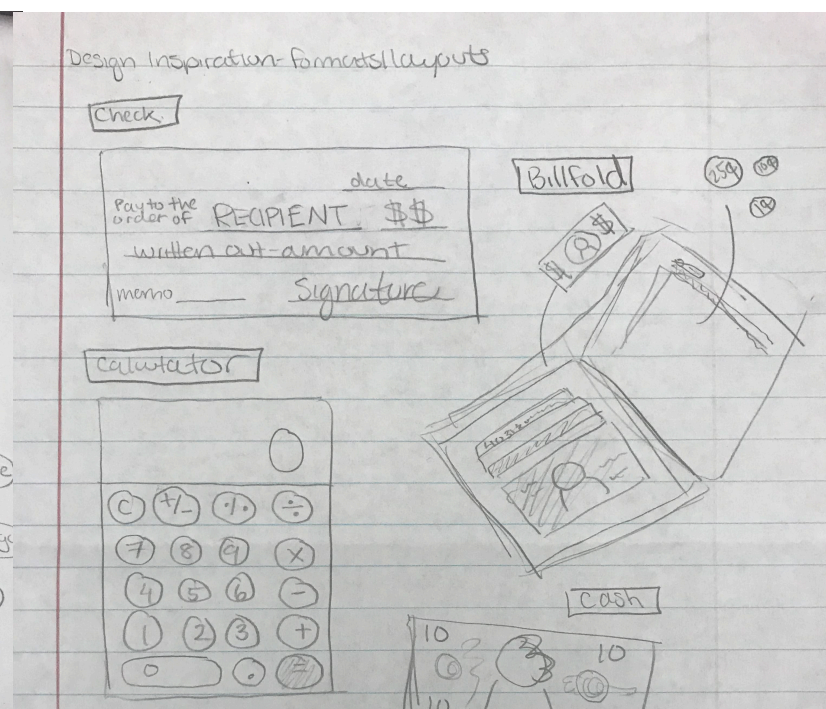 Design Inspiration-formats/layouts
Check
date
Pay to the
order of RECIPIENT $$
written out amount
memo Signature
Billfold
25¢ 10¢
1¢
$ $
Calculator
0
C +/- % ÷
7 8 9 ×
4 5 6 -
1 2 3 +
0 . =
Cash
10 10
10